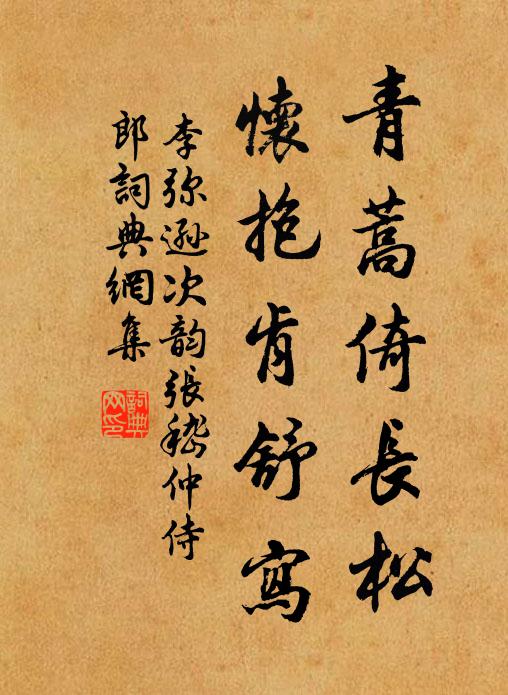 青蒿倚長松
懷抱肯舒寫
李弥遜次韵張嵇仲侍
郎詞典網集
詞典
网印